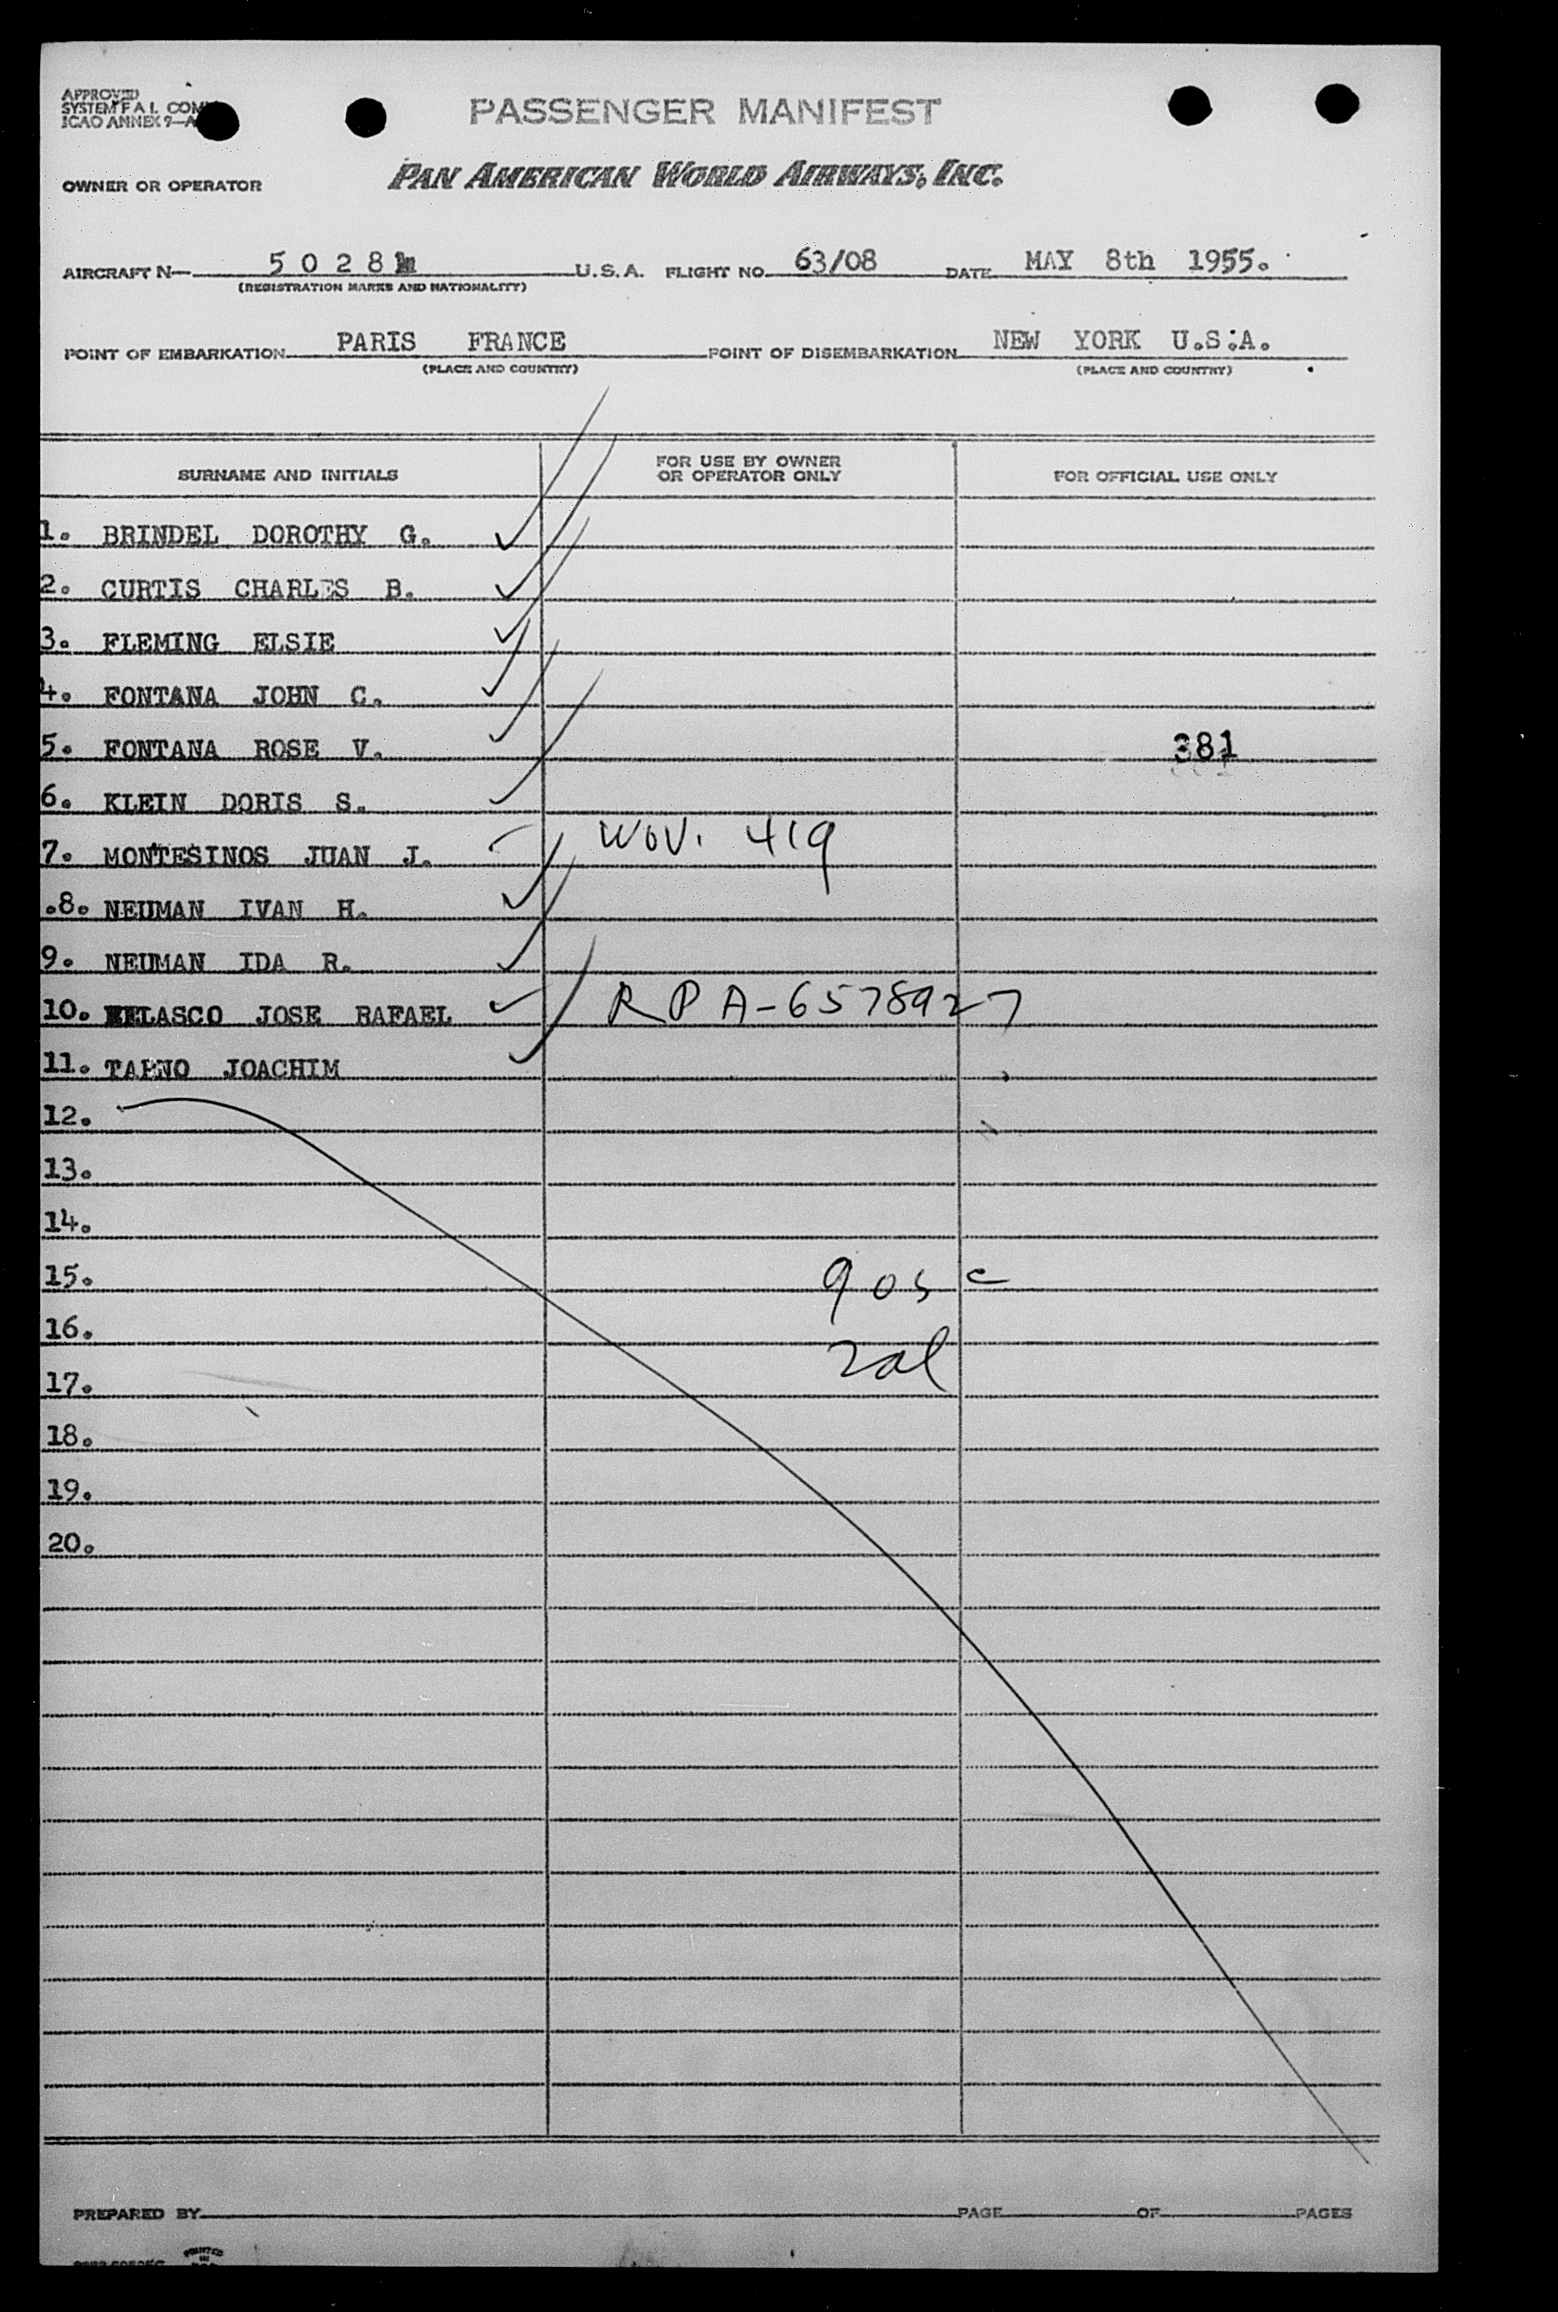 APPROVED
SYSTEM F A L COM
ICAO ANNEX 9—A
PASSENGER MANIFEST
OWNER OR OPERATOR PAN AMERICAN WORLD AIRWAYS, INC.
AIRCRAFT N— 5 0 2 8 U.S.A. FLIGHT NO. 63/08 DATE MAY 8th 1955.
(REGISTRATION MARKS AND NATIONALITY)
POINT OF EMBARKATION PARIS FRANCE POINT OF DISEMBARKATION NEW YORK U.S.A.
(PLACE AND COUNTRY) (PLACE AND COUNTRY)
SURNAME AND INITIALS FOR USE BY OWNER OR OPERATOR ONLY FOR OFFICIAL USE ONLY
1. BRINDEL DOROTHY G.
2. CURTIS CHARLES B.
3. FLEMING ELSIE
4. FONTANA JOHN C.
5. FONTANA ROSE V. 381
6. KLEIN DORIS S.
7. MONTESINOS JUAN J. WOV. 419
.8. NEUMAN IVAN H.
9. NEUMAN IDA R.
10. VELASCO JOSE RAFAEL RPA-6578927
11. JOACHIM
12.
13.
14.
15. 905 c
16.
17. 2al
18.
19.
20.
PREPARED BY PAGE OF PAGES
PRINTED
IN